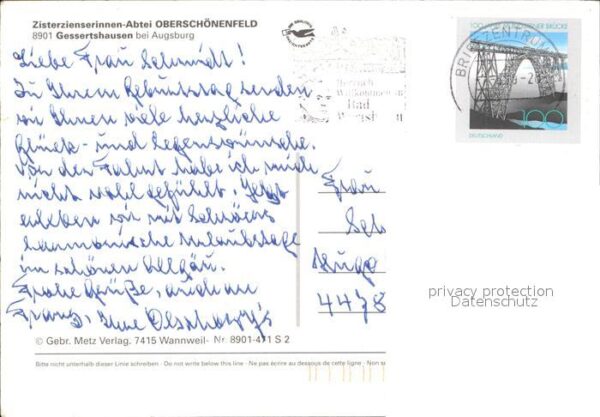 Zisterzienserinnen-Abtei OBERSCHÖNENFELD
8901 Gessertshausen bei Augsburg
Liebe Frau Schmidt!
Zu Ihrem Geburtstag senden
wir Ihnen viele herzliche
Glück- und Segenswünsche.
Von der Fahrt habe ich mich
nicht wohl gefühlt. Jetzt
erleben wir mit
harmonische Urlaubstage
im schönen Allgäu.
Frohe Grüße, auch an
Franz, Ihre
© Gebr. Metz Verlag. 7415 Wannweil- Nr. 8901-471 S 2
Bitte nicht unterhalb dieser Linie schreiben · Do not write below this line · Ne pas écrire au dessous de cette ligne · Non
Herzlich
Willkommen
Bad
BRIEFZENTRUM
100
DEUTSCHLAND
Frau
Sch
Hugo
4478
privacy protection
Datenschutz